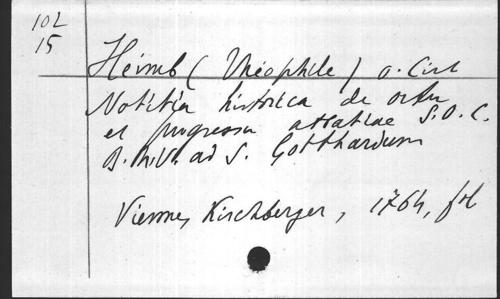 102
15
Heimb (Théophile) o. Cist
Notitia historica de ortu
et progressu abbatiae S.O.C.
B.M.V. ad S. Gotthardum
Vienne, Kirchberger, 1764, fol